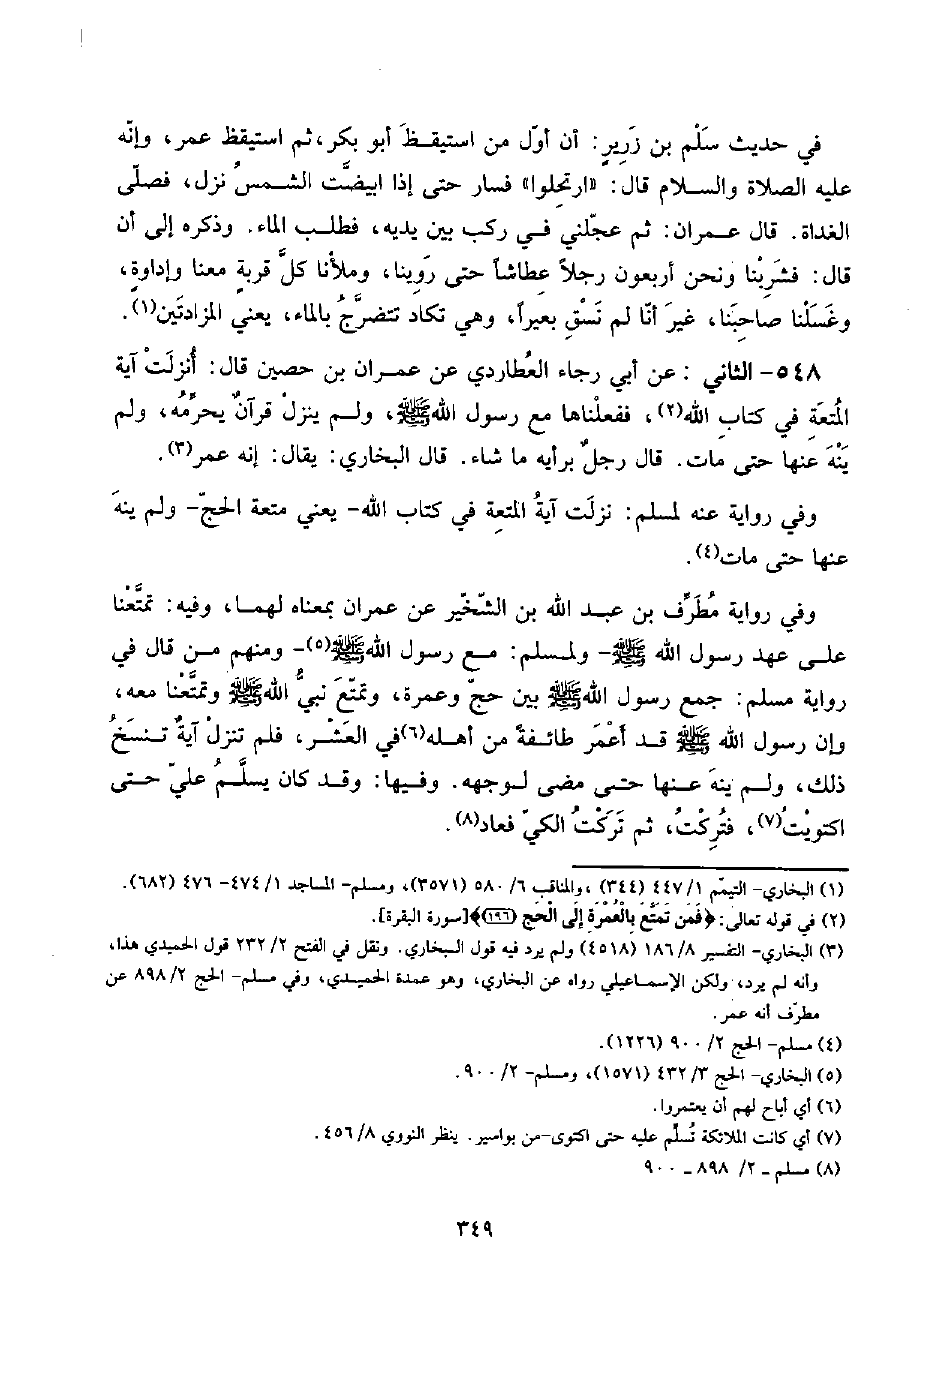 في حديث سَلْم بن زَرِيرٍ: أن أوّل من استيقـظَ أبو بكر، ثم استيقظ عمر، وإنّه
عليه الصلاة والسـلام قال: «ارتحلوا» فسار حتى إذا ابيضّت الشـمسُ نزل، فصلّى
الغداة. قال عـمران: ثم عجّلني فـي ركب بين يديه، فطلـب الماء. وذكره إلى أن
قال: فشَرِبْنا ونحن أربعون رجلاً عطاشاً حتى رَوِينا، وملأنا كلَّ قربةٍ معنا وإداوةٍ،
وغَسَلْنا صاحبَنا، غيرَ أنّا لم نَسْقِ بعيراً، وهي تكاد تتضرَّجُ بالماء، يعني المزادتَين(١).
٥٤٨- الثاني : عن أبي رجاء العُطاردي عن عمـران بن حصين قال: أُنزلَتْ آية
المُتعَةِ في كتابِ الله(٢)، ففعلْناها مع رسول اللهﷺ، ولـم ينزلْ قرآنٌ يحرِّمُه، ولم
يَنْهَ عنها حتى مات. قال رجلٌ برأيه ما شاء. قال البخاري: يقال: إنه عمر(٣).
وفي رواية عنه لمسلم: نزلَت آيةُ المتعة في كتاب الله- يعني متعة الحجّ- ولم ينهَ
عنها حتى مات(٤).
وفي رواية مُطَرِّف بن عبـد الله بن الشّخّير عن عمران بمعناه لهمـا، وفيه: تمتَّعْنا
علـى عهد رسول الله ﷺ- ولمـسلم: مـع رسول اللهﷺ(٥)- ومنهم مـن قال في
رواية مسلم: جمع رسول اللهﷺ بين حجّ وعمرة، وتمتّعَ نبيُّ اللهﷺ وتمتَّعْنا معه،
وإن رسول الله ﷺ قـد أعْمَر طائـفةً من أهـله(٦)في العَشْـر، فلم تنزلْ آيةٌ تـنسَخُ
ذلك، ولـم ينهَ عـنها حتـى مضى لـوجهه. وفـيها: وقـد كان يسلَّمُ عليّ حتـى
اكتويْتُ(٧)، فتُرِكْتُ، ثم تَرَكْتُ الكيّ فعاد(٨).
(١) البخاري- التيمّم ١/ ٤٤٧ (٣٤٤) ،والمناقب ٦/ ٥٨٠ (٣٥٧١)، ومسلم- المساجد ١/ ٤٧٤- ٤٧٦ (٦٨٢).
(٢) في قوله تعالى: ﴿فَمَن تَمَتَّعَ بِالْعُمْرَةِ إِلَى الْحَجِ (١٩٦)﴾[سورة البقرة].
(٣) البخاري- التفسير ٨/ ١٨٦ (٤٥١٨) ولم يرد فيه قول البخاري. ونقل في الفتح ٢/ ٢٣٢ قول الحميدي هذا،
وأنه لم يرد، ولكن الإسماعيلي رواه عن البخاري، وهو عمدة الحميدي، وفي مسلم- الحج ٢/ ٨٩٨ عن
مطرّف أنه عمر.
(٤) مسلم- الحج ٢/ ٩٠٠ (١٢٢٦).
(٥) البخاري- الحج ٣/ ٤٣٢ (١٥٧١)، ومسلم- ٢/ ٩٠٠.
(٦) أي أباح لهم أن يعتمروا.
(٧) أي كانت الملائكة تُسلّم عليه حتى اكتوى-من بواسير. ينظر النووي ٨/ ٤٥٦.
(٨) مسلم - ٢/ ٨٩٨ - ٩٠٠
٣٤٩